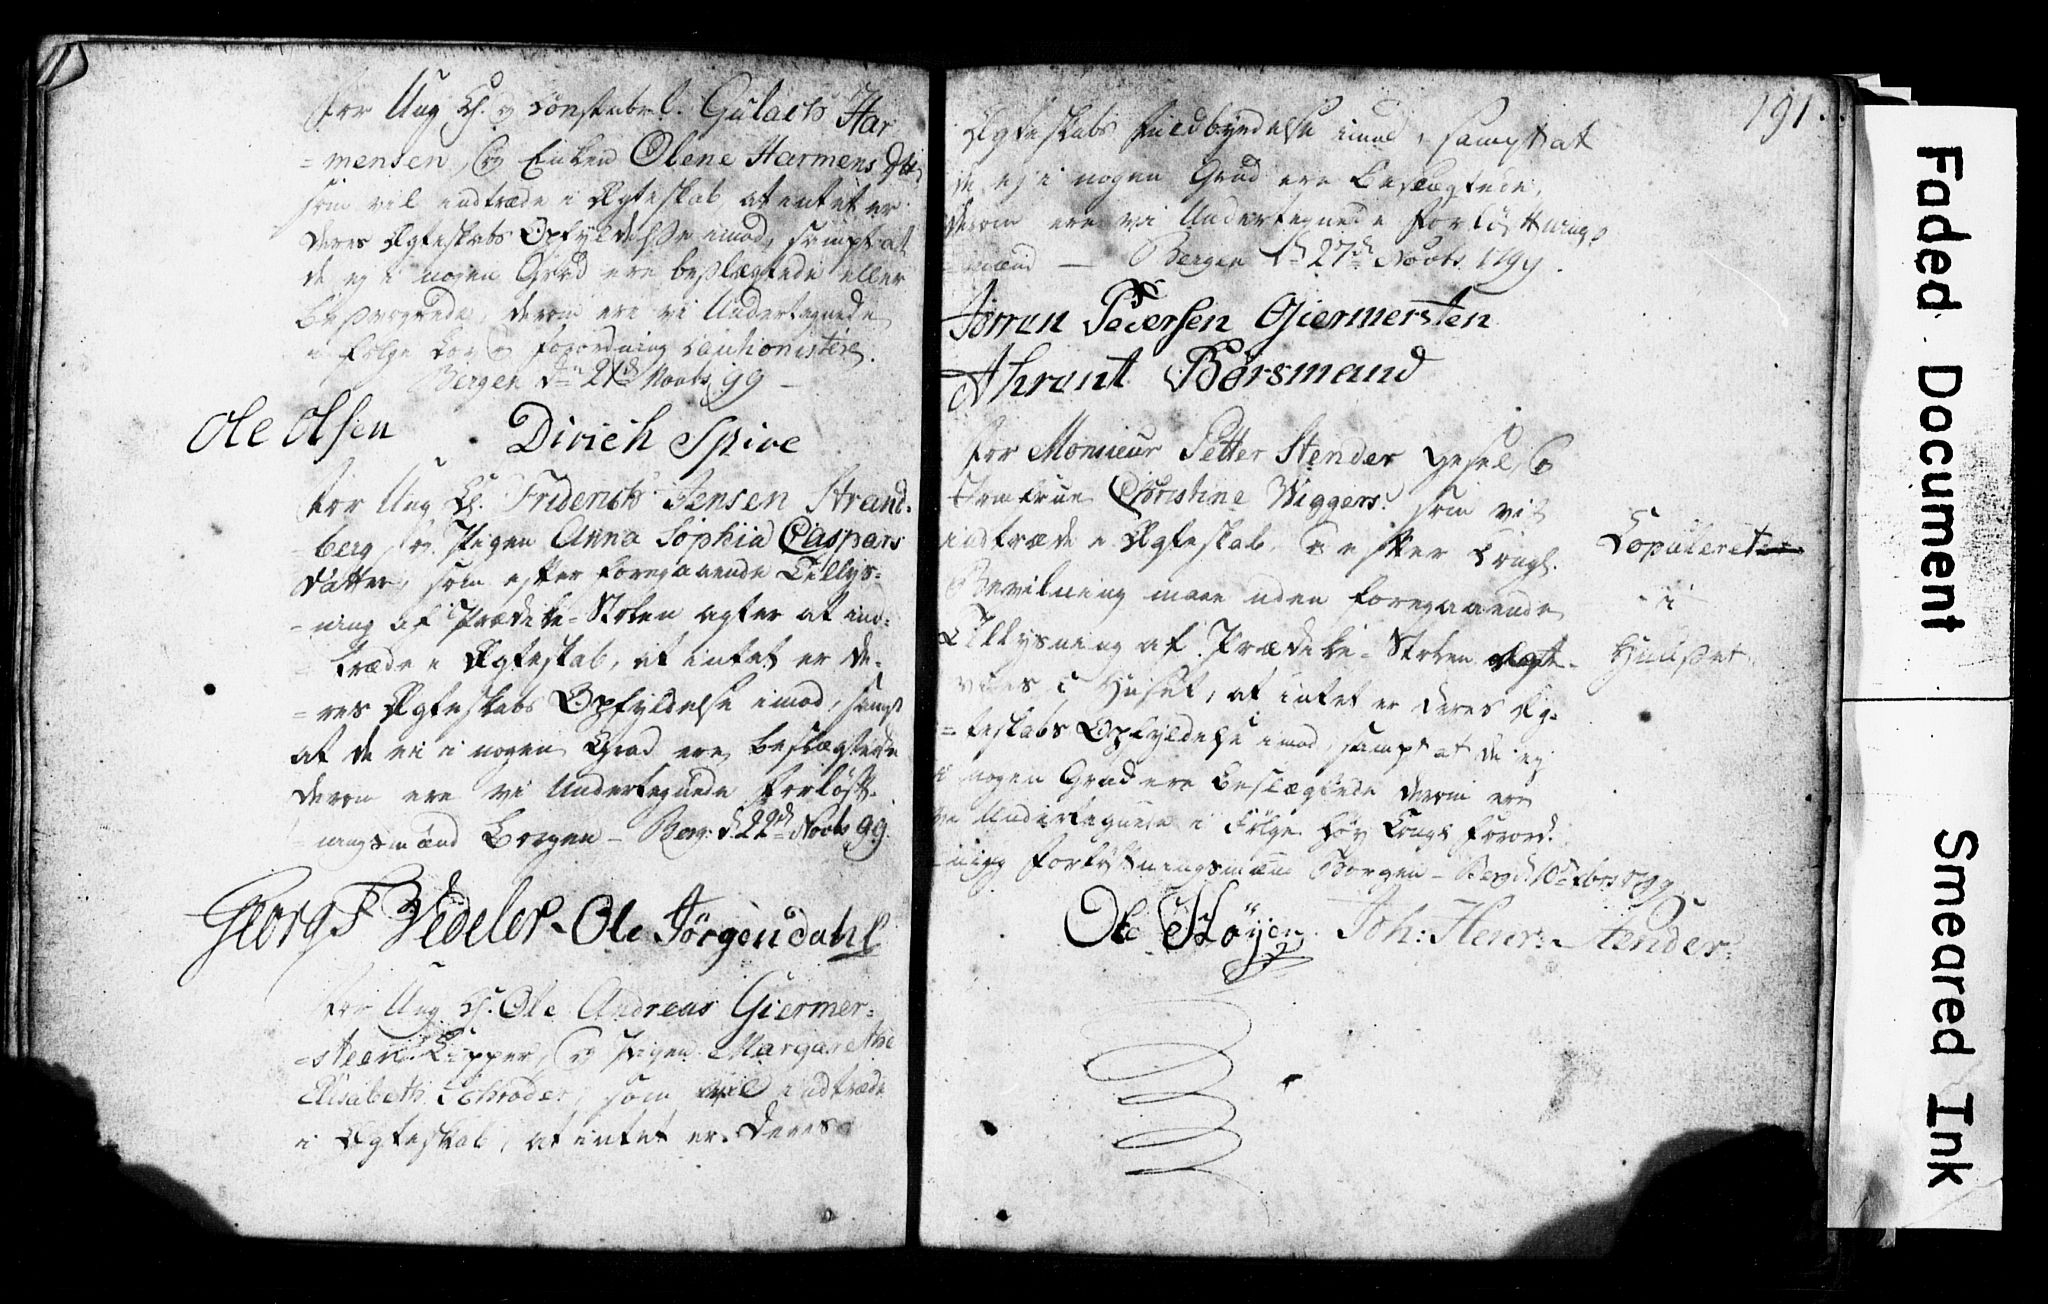 for Ung K. og Constabel. Gulach Har
=mensen, og Enken Olene Harmens Dtr
som vil indtræde i Ægteskab at intet er
deres Ægteskabs Opfyldelse imod, sampt at
de ej i nogen Grad ere beslægtede eller
besvogrede, derom ere vi Undertegnede
i følge Lov og forordning Cautionister.
Bergen dn 21de Novbr 99 –
Ole Olsen Dirich Spire
for Ung K. Friderich Jensen Strand-
berg, og Pigen Anna Sophia Caspars
Datter, som efter foregaaende Tillys=
=ning af Prædike-Stolen agter at ind=
træde i Ægteskab, at intet er de=
=res Ægteskabs Opfyldelse imod, sampt
at de ei i nogen Grad ere beslægtede
derom ere vi Undertegnede forløft-
ningsmænd Borgen – Berg. d. 22de Novbr 99.
Georg Vedeler – Ole Jørgen dahl
for Ung K. Ole Andreas Giermer=
=steen Kipper, og Pigen Margarethe
Elisabeth Schroder, som vil indtræde
i Ægteskab, at intet er deres
191.
Ægteskabs Fuldbyrdelse imod, sampt at
de ej i nogen Grad ere beslægtede,
derom ere vi Undertegnede forløftnings
=mænd — Bergen dn 27de Novbr 1799.
Jørren Pedersen Giermersten
Ahrent Børsmand
for Monsieur Petter Stender Gesel, og
Jomfrue Christine Wiggers. som vil
indtræde i Ægteskab, og efter Kongl.
Bevilning maae uden foregaaende
Tillysning af Prædike-Stolen Ægte-
vies i Huset, at intet er deres Æg=
=teskabs Opfyldelse imod, sampt at de ej
i nogen Grad ere beslægtede derom ere
vi Undertegnede i Følge høy Kongl. Forord=
=ning forløftningsmænd Borgen – Berg d. 10de Xbr 1799.
Ole Køyen Joh: Henr: Stender.
Copuleret
i
Huuset.
Faded Document
Smeared Ink